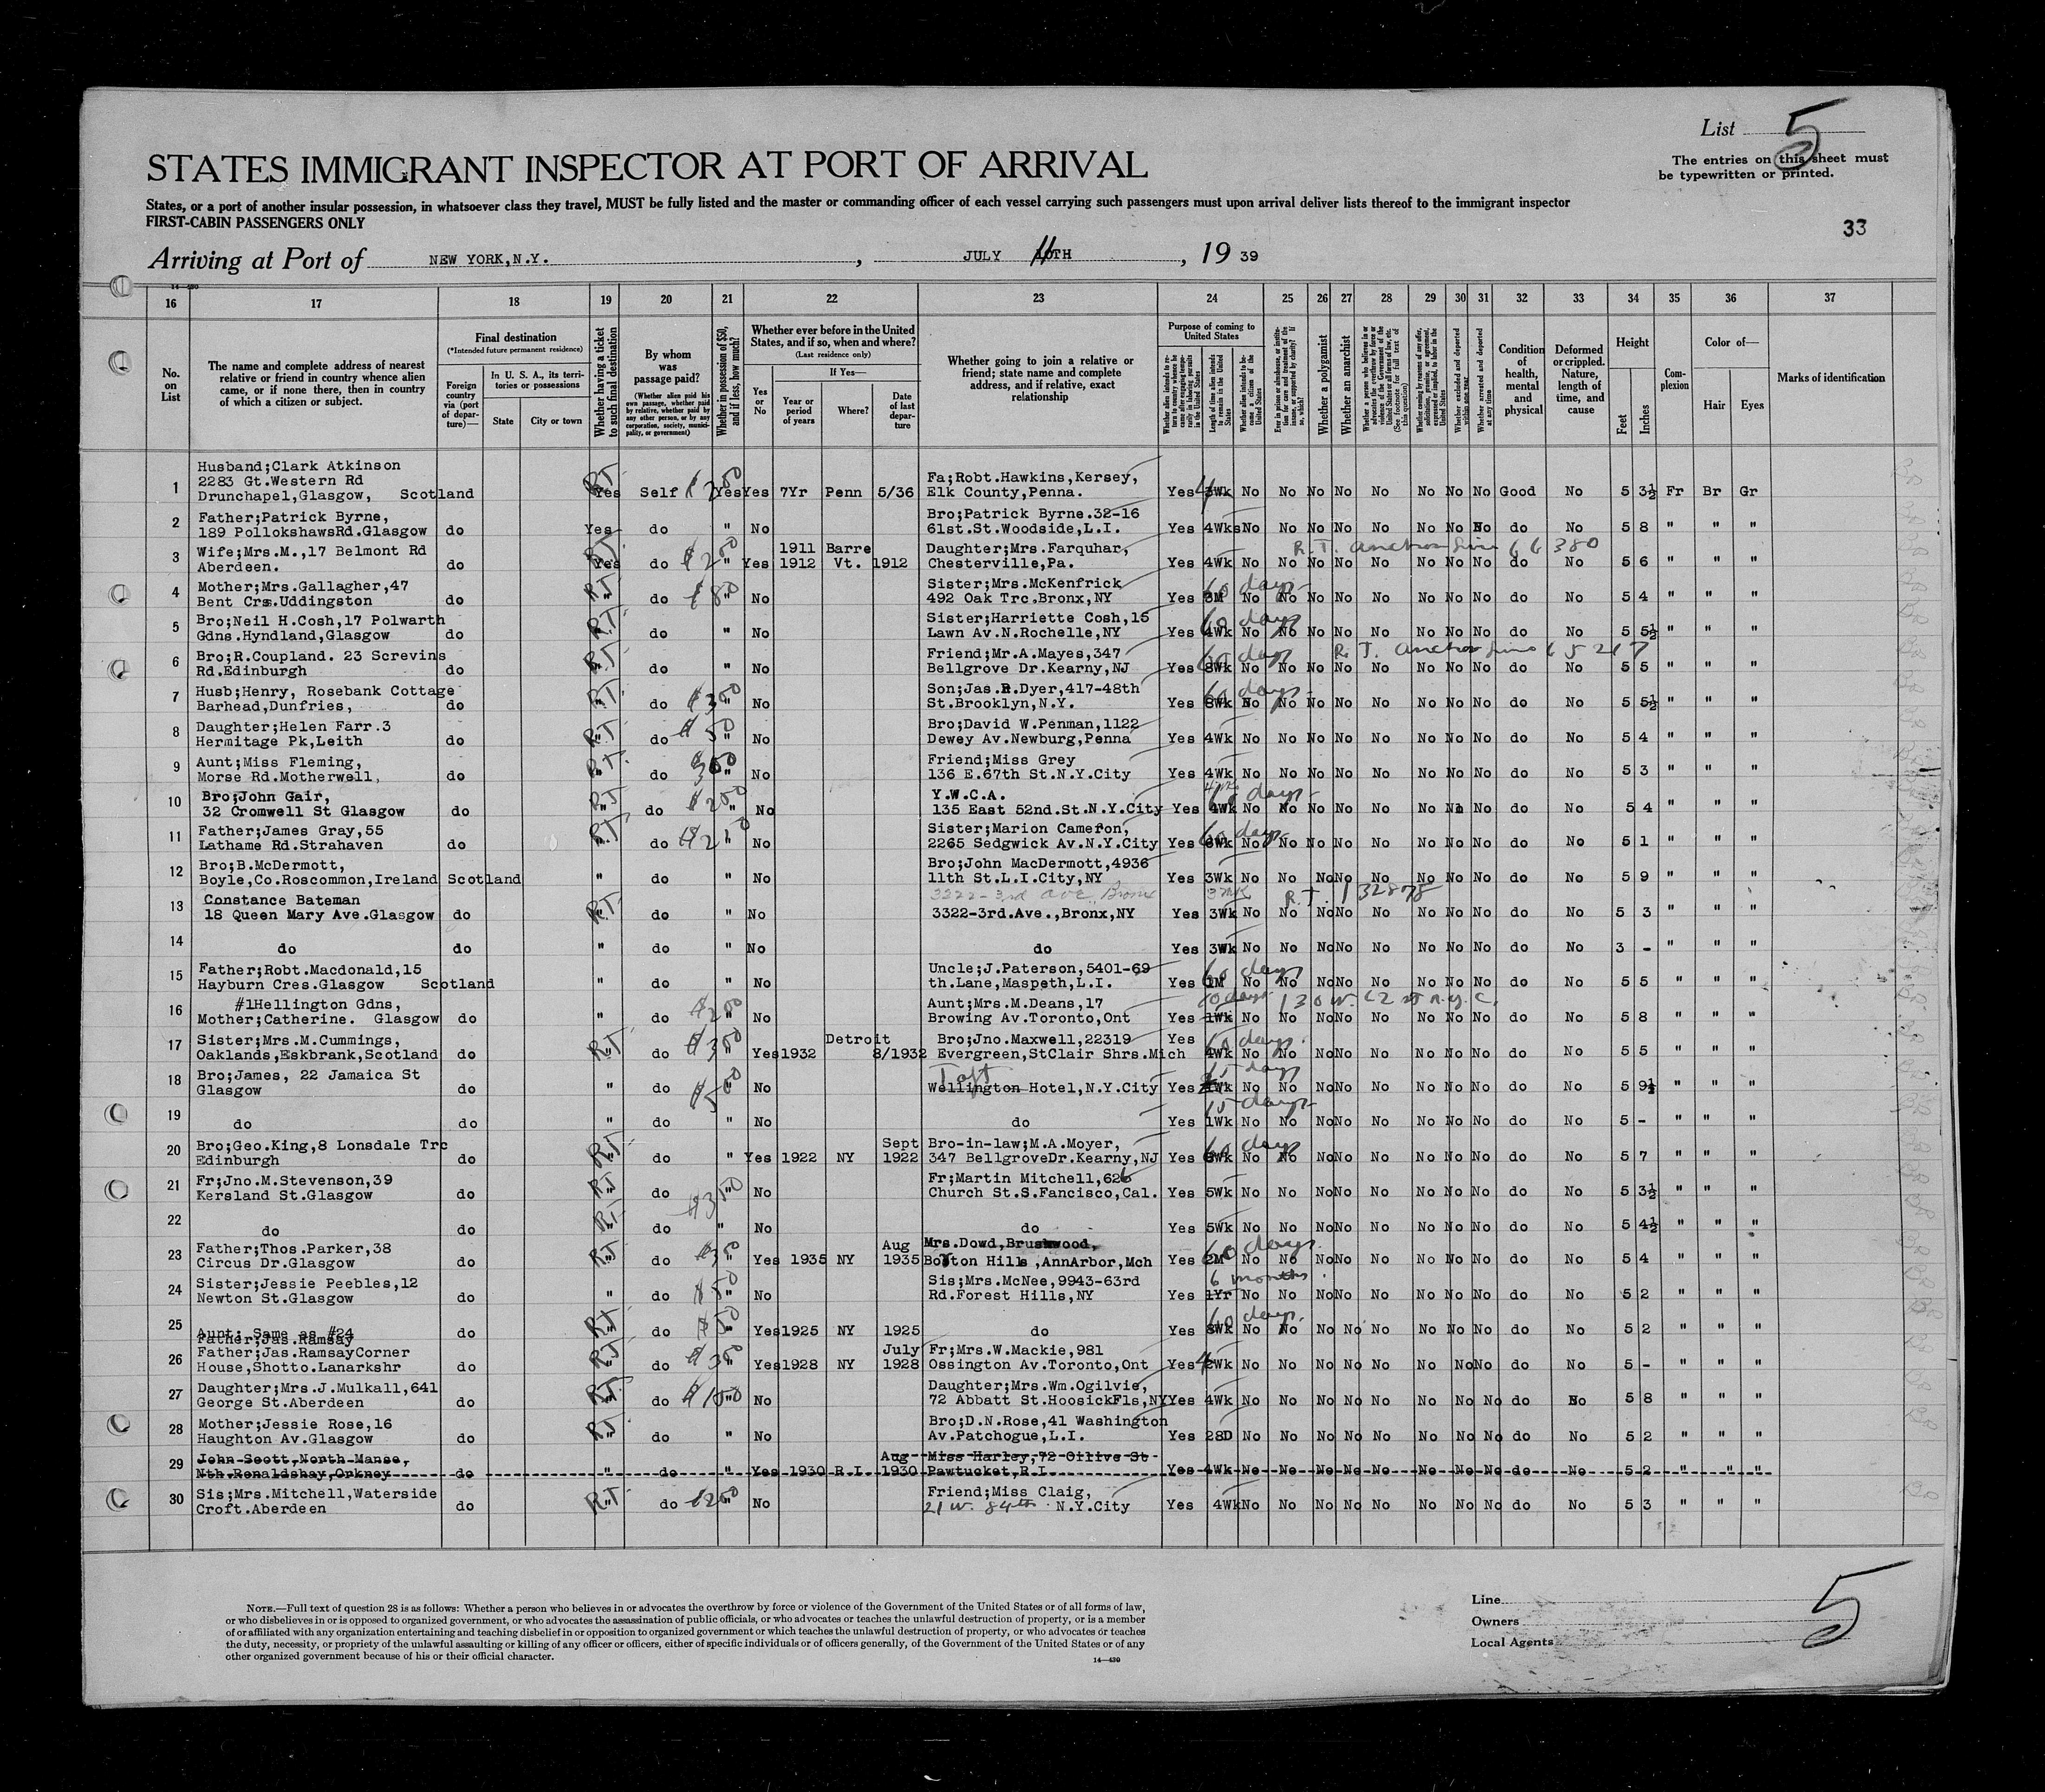 List 5
The entries on this sheet must
be typewritten or printed.
STATES IMMIGRANT INSPECTOR AT PORT OF ARRIVAL
States, or a port of another insular possession, in whatsoever class they travel, MUST be fully listed and the master or commanding officer of each vessel carrying such passengers must upon arrival deliver lists thereof to the immigrant inspector
FIRST-CABIN PASSENGERS ONLY
33
Arriving at Port of NEW YORK,N.Y. , JULY 11TH , 19 39
14-430
16 17 18 19 20 21 22 23 24 25 26 27 28 29 30 31 32 33 34 35 36 37
No. on List
The name and complete address of nearest relative or friend in country whence alien came, or if none there, then in country of which a citizen or subject.
Final destination
(*Intended future permanent residence)
Foreign country via (port of departure)—
In U. S. A., its territories or possessions
State
City or town
Whether having a ticket to such final destination
By whom was passage paid?
(Whether alien paid his own passage, whether paid by relative, whether paid by any other person, or by any corporation, society, municipality, or government)
Whether in possession of $50, and if less, how much?
Whether ever before in the United States, and if so, when and where?
(Last residence only)
Yes or No
If Yes—
Year or period of years
Where?
Date of last departure
Whether going to join a relative or friend; state name and complete address, and if relative, exact relationship
Purpose of coming to United States
Length of time alien intends to remain in the United States
Whether alien intends to become a citizen of the United States
Whether a polygamist
Whether an anarchist
(See footnote for full text of this question)
Whether arrested and deported at any time
Condition of health, mental and physical
Deformed or crippled. Nature, length of time, and cause
Height
Feet
Inches
Complexion
Color of—
Hair
Eyes
Marks of identification
Husband;Clark Atkinson Fa;Robt.Hawkins,Kersey,
2283 Gt.Western Rd
1 Drunchapel,Glasgow, Scotland RT Yes Self $200 Yes Yes 7Yr Penn 5/36 Elk County,Penna. Yes 4 3Wk No No No No No No No No Good No 5 3½ Fr Br Gr
Father;Patrick Byrne, Bro;Patrick Byrne.32-16
2 189 PollokshawsRd.Glasgow do Yes do " No 61st.St.Woodside,L.I. Yes 4Wks No No No No No No No No do No 5 8 " " "
Wife;Mrs.M.,17 Belmont Rd 1911 Barre Daughter;Mrs.Farquhar, R.T. Anchor Line 66380
3 Aberdeen. do RT Yes do $200 " Yes 1912 Vt. 1912 Chesterville,Pa. Yes 4Wk No No No No No No No No do No 5 6 " " "
Mother;Mrs.Gallagher,47 Sister;Mrs.McKenfrick 60 days
4 Bent Crs.Uddingston do RT " do $80 " No 492 Oak Trc.Bronx,NY Yes 3M No No No No No No No No do No 5 4 " " "
Bro;Neil H.Cosh,17 Polwarth Sister;Harriette Cosh,15 60 days
5 Gdns.Hyndland,Glasgow do RT " do " No Lawn Av.N.Rochelle,NY Yes 4Wk No No No No No No No No do No 5 5½ " " "
Bro;R.Coupland. 23 Screvins Friend;Mr.A.Mayes,347 60 days R.T. Anchor Line 65217
6 Rd.Edinburgh do RT " do " No Bellgrove Dr.Kearny,NJ Yes 8Wk No No No No No No No No do No 5 5 " " "
Husb;Henry, Rosebank Cottage Son;Jas.R.Dyer,417-48th 60 days
7 Barhead,Dunfries, do RT " do $300 " No St.Brooklyn,N.Y. Yes 8Wk No No No No No No No No do No 5 5½ " " "
Daughter;Helen Farr.3 Bro;David W.Penman,1122
8 Hermitage Pk,Leith do RT " do $50 " No Dewey Av.Newburg,Penna Yes 4Wk No No No No No No No No do No 5 4 " " "
Aunt;Miss Fleming, Friend;Miss Grey
9 Morse Rd.Motherwell, do RT " do 300 " No 136 E.67th St.N.Y.City Yes 4Wk No No No No No No No No do No 5 3 " " "
Bro;John Gair, Y.W.C.A. 60 days
10 32 Cromwell St Glasgow do RT " do $200 " No 135 East 52nd.St.N.Y.City Yes 4Wk No No No No No No No do No 5 4 " " "
Father;James Gray,55 Sister;Marion Cameron, 60 days
11 Lathame Rd.Strahaven do RT " do $210 " No 2265 Sedgwick Av.N.Y.City Yes 6Wk No No No No No No No No do No 5 1 " " "
Bro;B.McDermott, Bro;John MacDermott,4936
12 Boyle,Co.Roscommon,Ireland Scotland " do " No 11th St.L.I.City,NY Yes 3Wk No No No No No No No No do No 5 9 " " "
Constance Bateman 3322-3rd Ave. Bronx 3 Wk R.T. 132878
13 18 Queen Mary Ave.Glasgow do RT " do " No 3322-3rd.Ave.,Bronx,NY Yes 3Wk No No No No No No No No do No 5 3 " " "
14 do do " do " No do Yes 3Wk No No No No No No No No do No 3 - " " "
Father;Robt.Macdonald,15 Uncle;J.Paterson,5401-69 60 days
15 Hayburn Cres.Glasgow Scotland " do " No th.Lane,Maspeth,L.I. Yes 1M No No No No No No No No do No 5 5 " " "
#1Hellington Gdns, Aunt;Mrs.M.Deans,17 60 days
16 Mother;Catherine. Glasgow do " do $200 " No Browing Av.Toronto,Ont Yes 1Wk No No No No No No No No do No 5 8 " " "
Sister;Mrs.M.Cummings, Detroit Bro;Jno.Maxwell,22319 Yes 60 days
17 Oaklands,Eskbrank,Scotland do RT " do $300 " Yes 1932 8/1932 Evergreen,StClair Shrs.Mich 4Wk No No No No No No No No do No 5 5 " " "
Bro;James, 22 Jamaica St Taft 15 days
18 Glasgow do " do $500 " No Wellington Hotel,N.Y.City Yes 1Wk No No No No No No No No do No 5 9½ " " "
15 days
19 do do " do " No do Yes 1Wk No No No No No No No No do No 5 - " " "
Bro;Geo.King,8 Lonsdale Trc Sept Bro-in-law;M.A.Moyer, 60 days
20 Edinburgh do RT " do " Yes 1922 NY 1922 347 BellgroveDr.Kearny,NJ Yes 6Wk No No No No No No No No do No 5 7 " " "
Fr;Jno.M.Stevenson,39 Fr;Martin Mitchell,626
21 Kersland St.Glasgow do RT do " No Church St.S.Fancisco,Cal. Yes 5Wk No No No No No No No No do No 5 3½ " " "
22 do do RT do " No do Yes 5Wk No No No No No No No No do No 5 4½ " " "
Father;Thos.Parker,38 Aug Mrs.Dowd,Brushwood, 60 days
23 Circus Dr.Glasgow do RT " do " Yes 1935 NY 1935 Borton Hills ,AnnArbor,Mch Yes 2M No No No No No No No No do No 5 4 " " "
Sister;Jessie Peebles,12 Sis;Mrs.McNee,9943-63rd 6 months
24 Newton St.Glasgow do " do $50 " No Rd.Forest Hills,NY Yes 1Yr No No No No No No No No do No 5 2 " " "
60 days
25 Aunt; Same as #24 do RT do $50 " Yes 1925 NY 1925 do Yes 8Wk No No No No No No No No do No 5 2 " " "
Father;Jas.Ramsay
Father;Jas.RamsayCorner July Fr;Mrs.W.Mackie,981
26 House,Shotto.Lanarkshr do RT do " Yes 1928 NY 1928 Ossington Av.Toronto,Ont Yes 4 2Wk No No No No No No No No do No 5 - " " "
Daughter;Mrs.J.Mulkall,641 Daughter;Mrs.Wm.Ogilvie,
27 George St.Aberdeen do RT " do $100 " No 72 Abbatt St.HoosickFls,NY Yes 4Wk No No No No No No No No do No 5 8 " " "
Mother;Jessie Rose,16 Bro;D.N.Rose,41 Washington
28 Haughton Av.Glasgow do RT do " No Av.Patchogue,L.I. Yes 28D No No No No No No No No do No 5 2 " " "
John Scott,North Manse, Aug Miss Harley,72 Ollive St
29 Nth.Renaldshay,Orkney do " do " Yes 1930 R.I. 1930 Pawtucket,R.I. Yes 4Wk No No No No No No No No do No 5 2 " " "
Sis;Mrs.Mitchell,Waterside Friend;Miss Claig,
30 Croft.Aberdeen do RT " do $200 " No 21 W. 84th N.Y.City Yes 4Wk No No No No No No No No do No 5 3 " " "
NOTE.—Full text of question 28 is as follows: Whether a person who believes in or advocates the overthrow by force or violence of the Government of the United States or of all forms of law,
or who disbelieves in or is opposed to organized government, or who advocates the assassination of public officials, or who advocates or teaches the unlawful destruction of property, or is a member
of or affiliated with any organization entertaining and teaching disbelief in or opposition to organized government or which teaches the unlawful destruction of property, or who advocates or teaches
the duty, necessity, or propriety of the unlawful assaulting or killing of any officer or officers, either of specific individuals or of officers generally, of the Government of the United States or of any
other organized government because of his or their official character.
14—430
Line
Owners
Local Agents
5